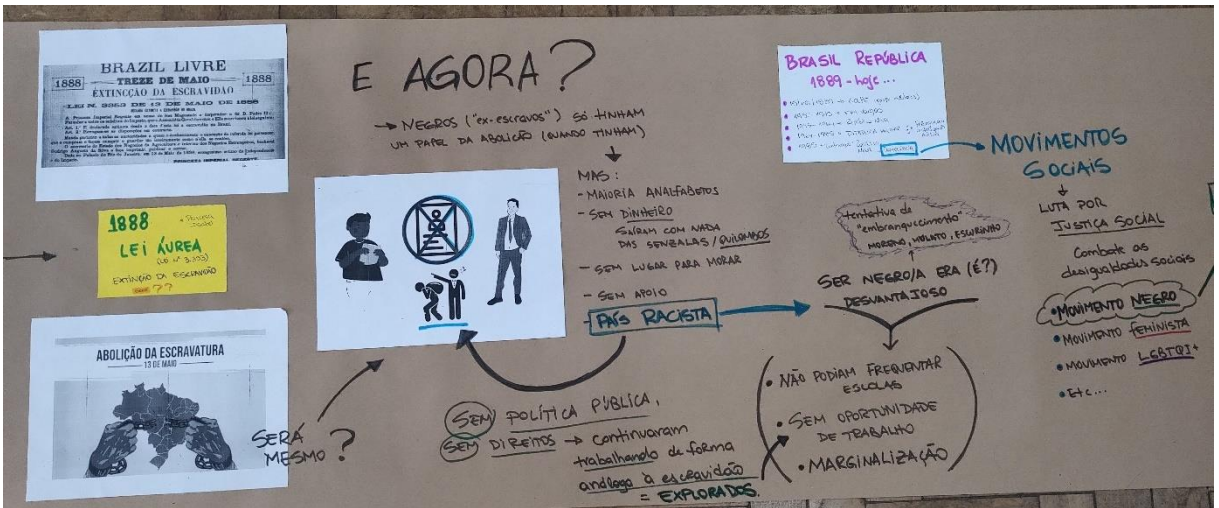 BRAZIL LIVRE
1888 TREZE DE MAIO 1888
EXTINCÇÃO DA ESCRAVIDÃO
LEI N. 3353 DE 13 DE MAIO DE 1888
1888
LEI ÁUREA
EXTINÇÃO DA ESCRAVIDÃO
??
ABOLIÇÃO DA ESCRAVATURA
13 DE MAIO
SERÁ
MESMO?
E AGORA?
→ NEGROS ("EX-ESCRAVOS") SÓ TINHAM
UM PAPEL DA ABOLIÇÃO (QUANDO TINHAM)
MAS:
- MAIORIA ANALFABETOS
- SEM DINHEIRO
SAÍRAM COM NADA
DAS SENZALAS/QUILOMBOS
- SEM LUGAR PARA MORAR
- SEM APOIO
- PAÍS RACISTA
SEM POLÍTICA PÚBLICA,
SEM DIREITOS → continuaram
trabalhando de forma
análoga à escravidão
= EXPLORADOS.
BRASIL REPÚBLICA
1889 - hoje...
tentativa de
"embranquecimento"
MORENO, MULATO, ESCURINHO
SER NEGRO/A ERA (É?)
DESVANTAJOSO
• NÃO PODIAM FREQUENTAR
ESCOLAS
• SEM OPORTUNIDADE
DE TRABALHO
• MARGINALIZAÇÃO
MOVIMENTOS
SOCIAIS
LUTA POR
JUSTIÇA SOCIAL
Combate as
desigualdades sociais
• MOVIMENTO NEGRO
• MOVIMENTO feminista
• MOVIMENTO LGBTQI+
• Etc...